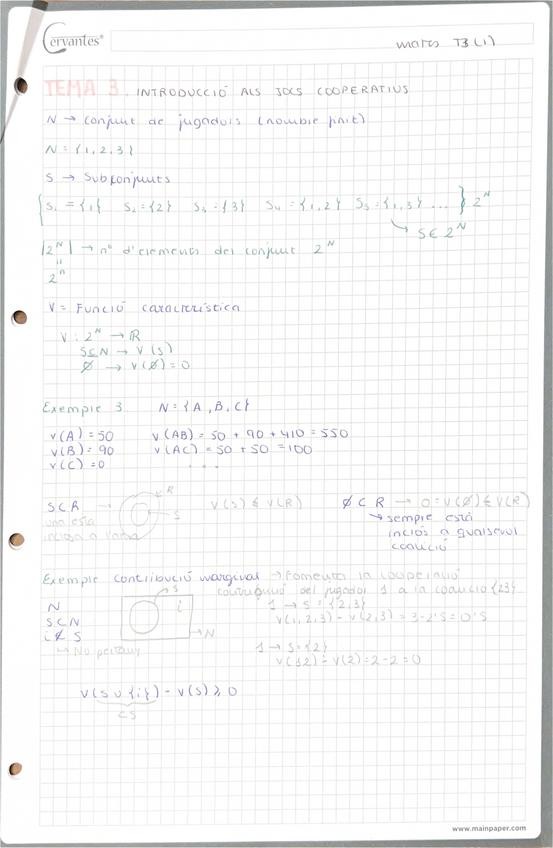 Cervantes
mates T3 (1)
TEMA 3. INTRODUCCIÓ ALS JOCS COOPERATIUS
N → conjunt de jugadors (nombre finit)
N = {1, 2, 3}
S → Subconjunts
{S₁ = {1} S₂ = {2} S₃ = {3} S₄ = {1, 2} S₅ = {1, 3} ... } 2^N
↳ S ∈ 2^N
|2^N| → nº d'elements del conjunt 2^N
"
2^n
V = Funció característica
V : 2^N → ℝ
S ⊆ N → V(S)
∅ → V(∅) = 0
Exemple 3 N = {A, B, C}
v(A) = 50 v(AB) = 50 + 90 + 410 = 550
v(B) = 90 v(AC) = 50 + 50 = 100
v(C) = 0 . . .
S ⊂ R → R S V(S) ≤ V(R) ∅ ⊂ R → 0 = V(∅) ≤ V(R)
una està inclosa a l'altra
↳ sempre està
inclòs a qualsevol
coalició
Exemple contribució marginal → Fomenta la cooperació
contribució del jugador 1 a la coalició {23}
N S i N 1 → S = {2,3}
S ⊂ N v(1,2,3) - v(2,3) = 3 - 2'5 = 0'5
i ∉ S
↳ No pertany 1 → S = {2}
v(12) - v(2) = 2 - 2 = 0
v(S ∪ {i}) - v(S) ≥ 0
www.mainpaper.com